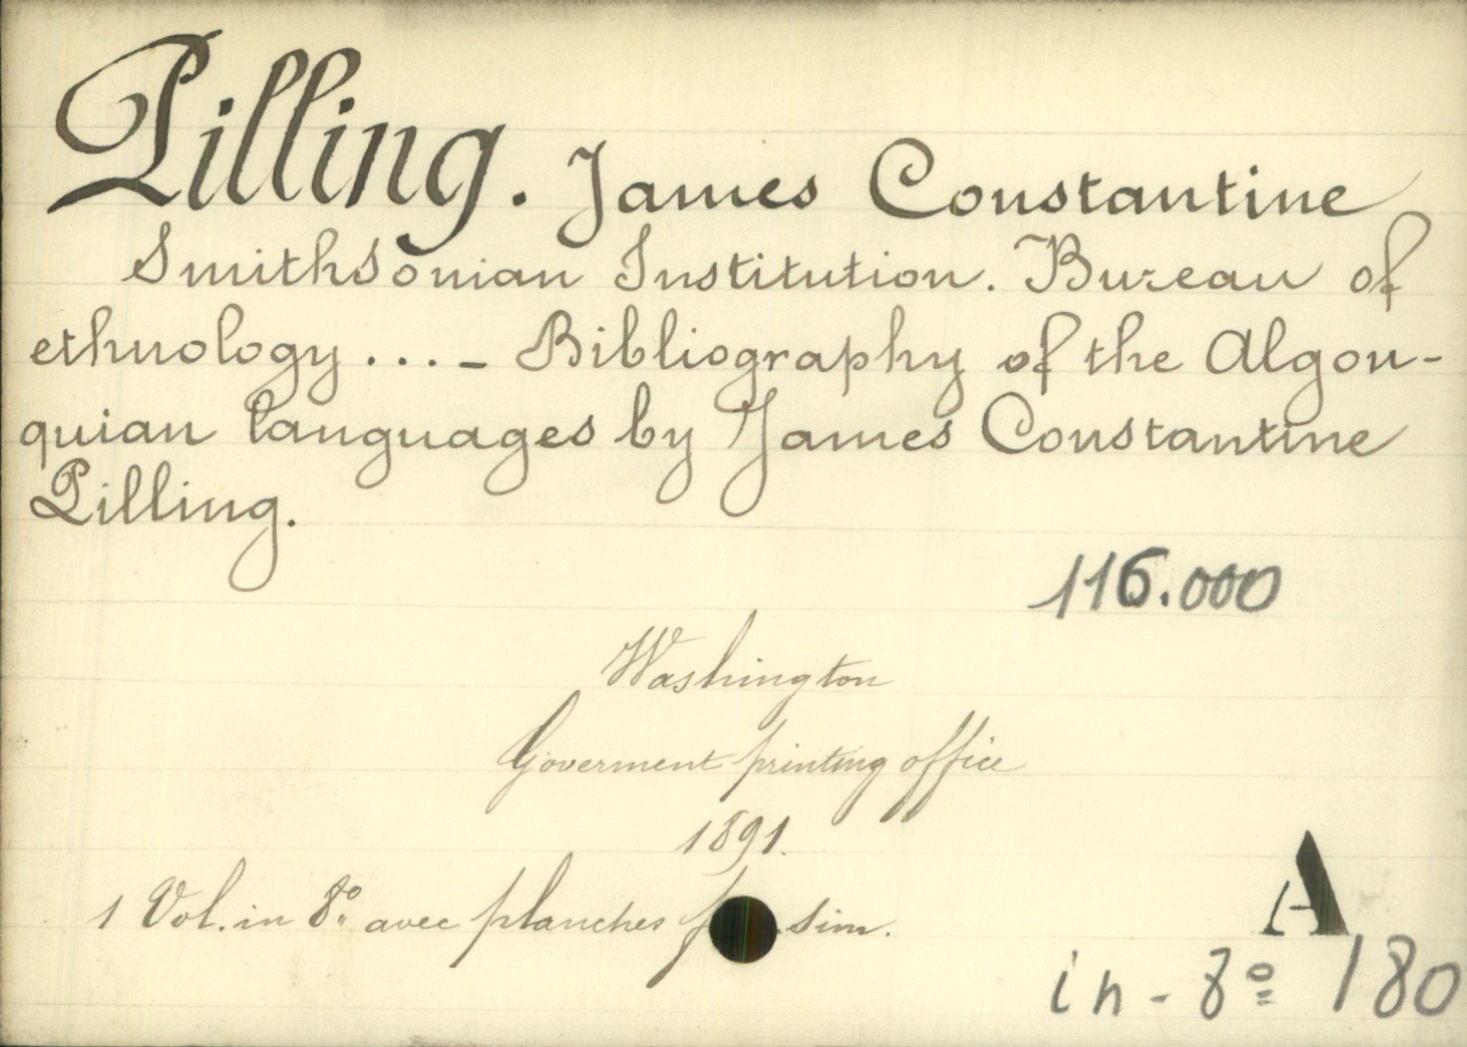 Pilling. James Constantine
Smithsonian Institution. Bureau of
ethnology... - Bibliography of the Algon-
quian languages by James Constantine
Pilling.
116.000
Washington
Goverment printing office
1891.
1 Vol. in 8º avec planches sim.
A
in-8º 180